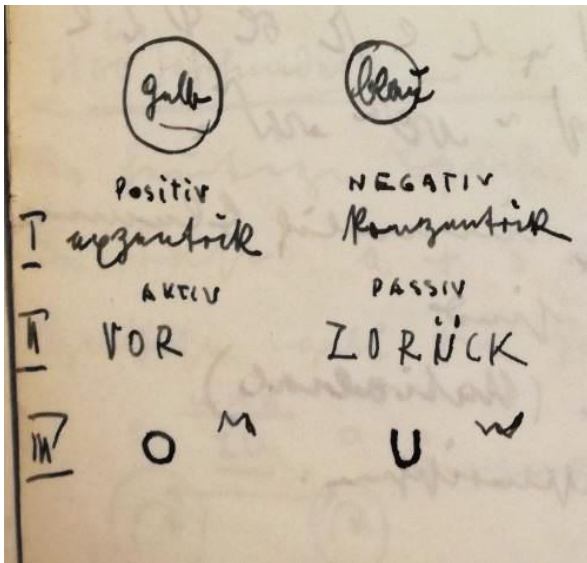 gelb blau
Positiv NEGATIV
I exzentrik Konzentrik
AKTIV PASSIV
II VOR ZURÜCK
III O U